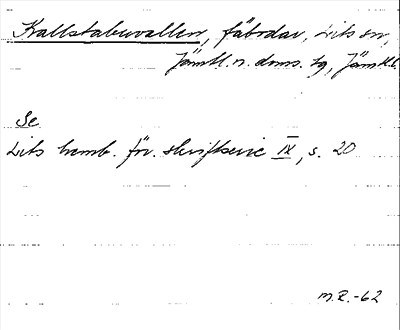 Kallstabuvallen, fäbodar, Lits sn,
Jämtl. n. doms. tg, Jämtl.l.
Se
Lits hemb. för. skriftserie IX, s. 20
M.R.-62